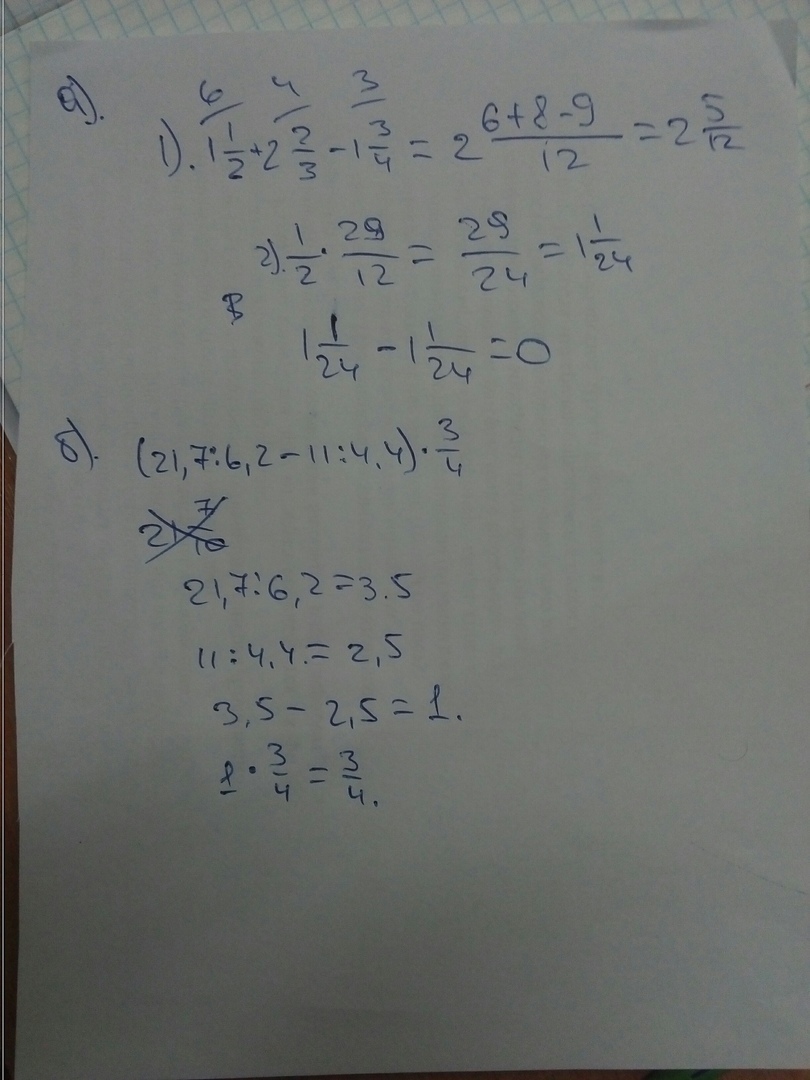 а).
6 4 3
1). 1 1/2 + 2 2/3 - 1 3/4 = 2 (6+8-9)/12 = 2 5/12
2). 1/2 · 29/12 = 29/24 = 1 1/24
1 1/24 - 1 1/24 = 0
б). (21,7:6,2-11:4,4)·3/4
21 7/10
21,7:6,2=3.5
11:4,4.=2,5
3,5-2,5=1.
1·3/4=3/4.